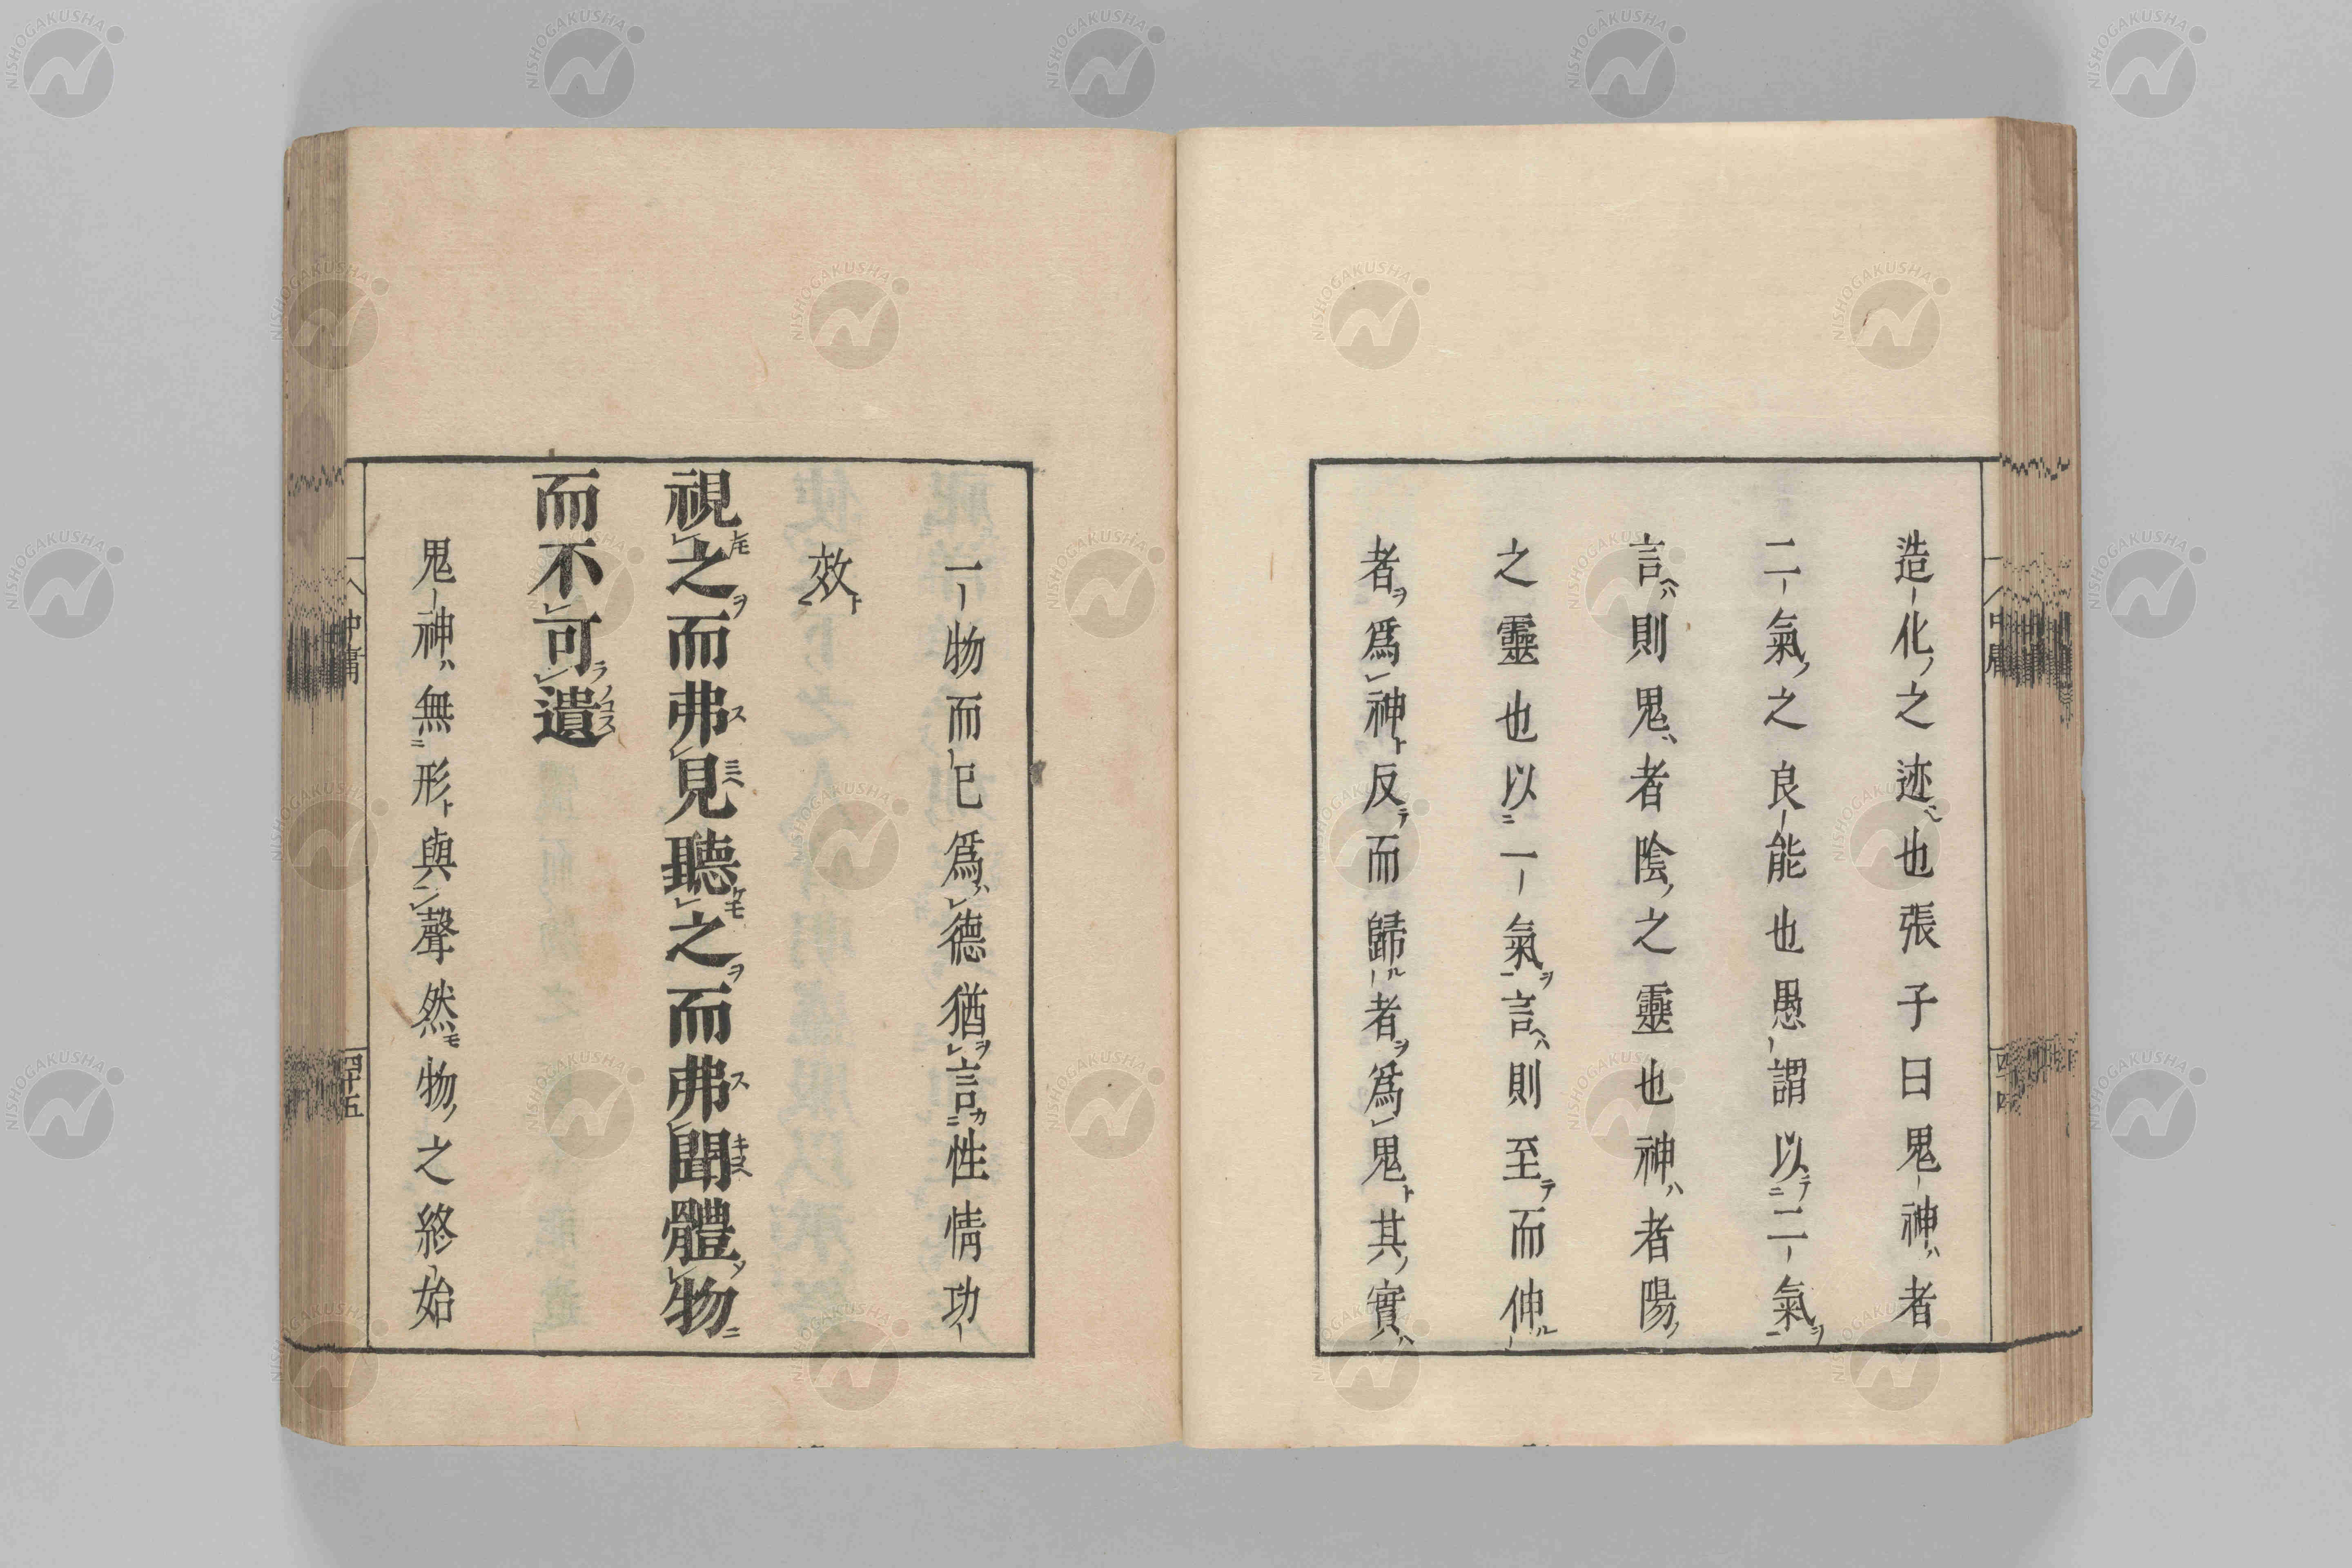 造化之迹也張子曰鬼神者
二氣之良能也愚謂以二氣
言則鬼者陰之靈也神者陽
之靈也以一氣言則至而伸
者爲神反而歸者爲鬼其實
一物而已爲德猶言性情功
效
視之而弗見聽之而弗聞體物
而不可遺
鬼神無形與聲然物之終始
中庸
四十五
NISHOGAKUSHA